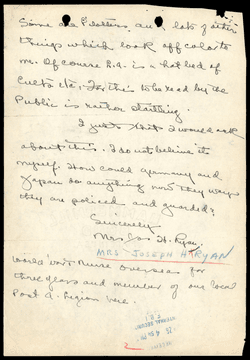 Some are Plotters and lots of other
things which look off color to
me. Of course L.A. is a hot bed of
Cults etc, for this to be read by the
Public is rather startling.
I just thot I would ask
about this. I do not believe it
myself. How could Germany and
Japan do anything now they ways
they are policed and guarded?
Sincerely
Mrs Jos H. Ryan.
MRS JOSEPH H. RYAN
World War Nurse overseas for
three years and member of our local
Post A. Legion here.
2